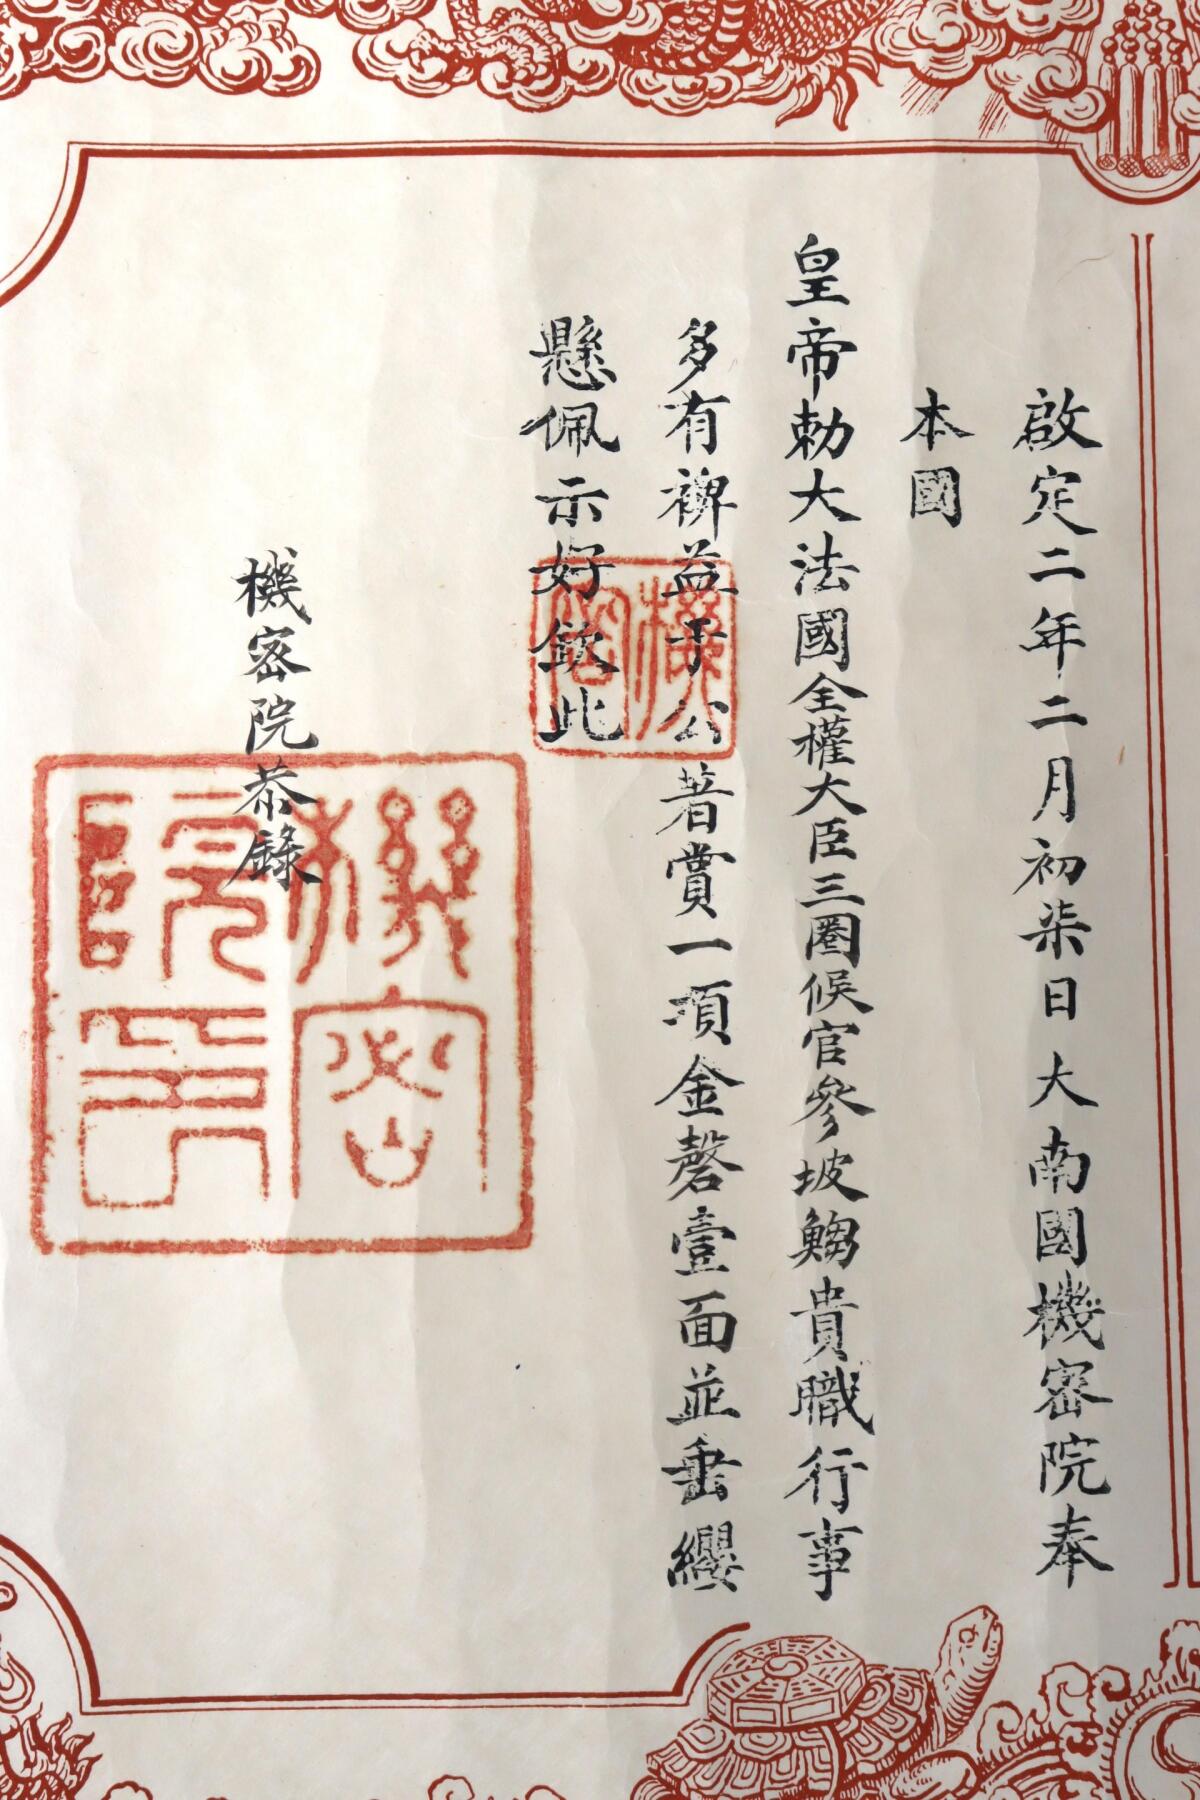 啟定二年二月初柒日大南國機密院奉
本國
皇帝勅大法國全權大臣三圈候官參坡𩹰貴職行事
多有裨益于公著賞一項金磬壹面並垂纓
懸佩示好欽此
機密院恭錄
機密
機密院印